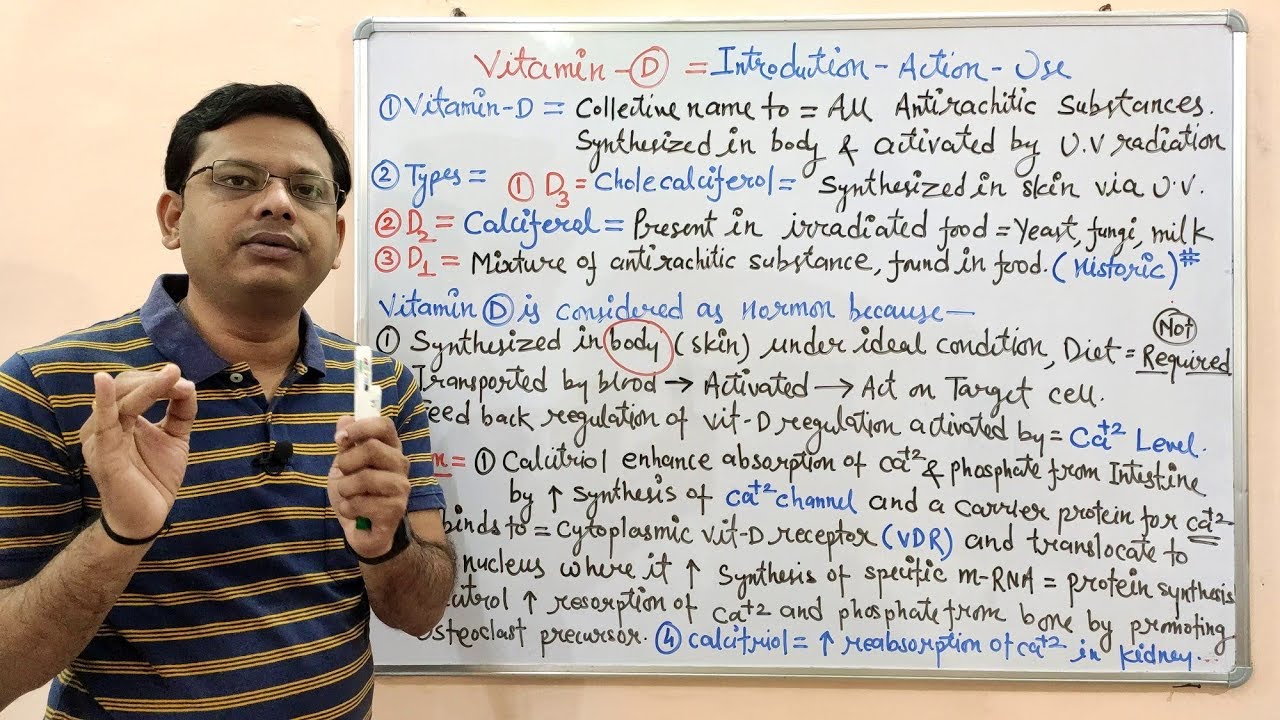 Vitamin-D = Introdution - Action - Use
① Vitamin-D = Collective name to = All Antirachitic Substances.
Synthesized in body & activated by U.V radiation
② Types = ① D3 = Cholecalciferol = Synthesized in skin via U.V.
② D2 = Calciferol = Present in irradiated food = Yeast, fungi, milk
③ D1 = Mixture of antirachitic substance, found in food. (Historic)#
Vitamin D is considered as Hormon because—
① Synthesized in body (skin) under ideal condition, Diet = Not Required
Transported by blood → Activated → Act on Target cell.
Feed back reegulation of vit-D reegulation activated by = Ca+2 Level.
= ① Calcitriol enhance absorption of Ca+2 & phosphate from Intestine
by ↑ synthesis of Ca+2 channel and a carrier protein for Ca+2
binds to = cytoplasmic vit-D receptor (VDR) and translocate to
nucleus where it ↑ synthesis of specific m-RNA = protein synthesis
↑ resorption of Ca+2 and phosphate from bone by promoting
osteoclast precursor. ④ Calcitriol = ↑ reabsorption of Ca+2 in kidney...